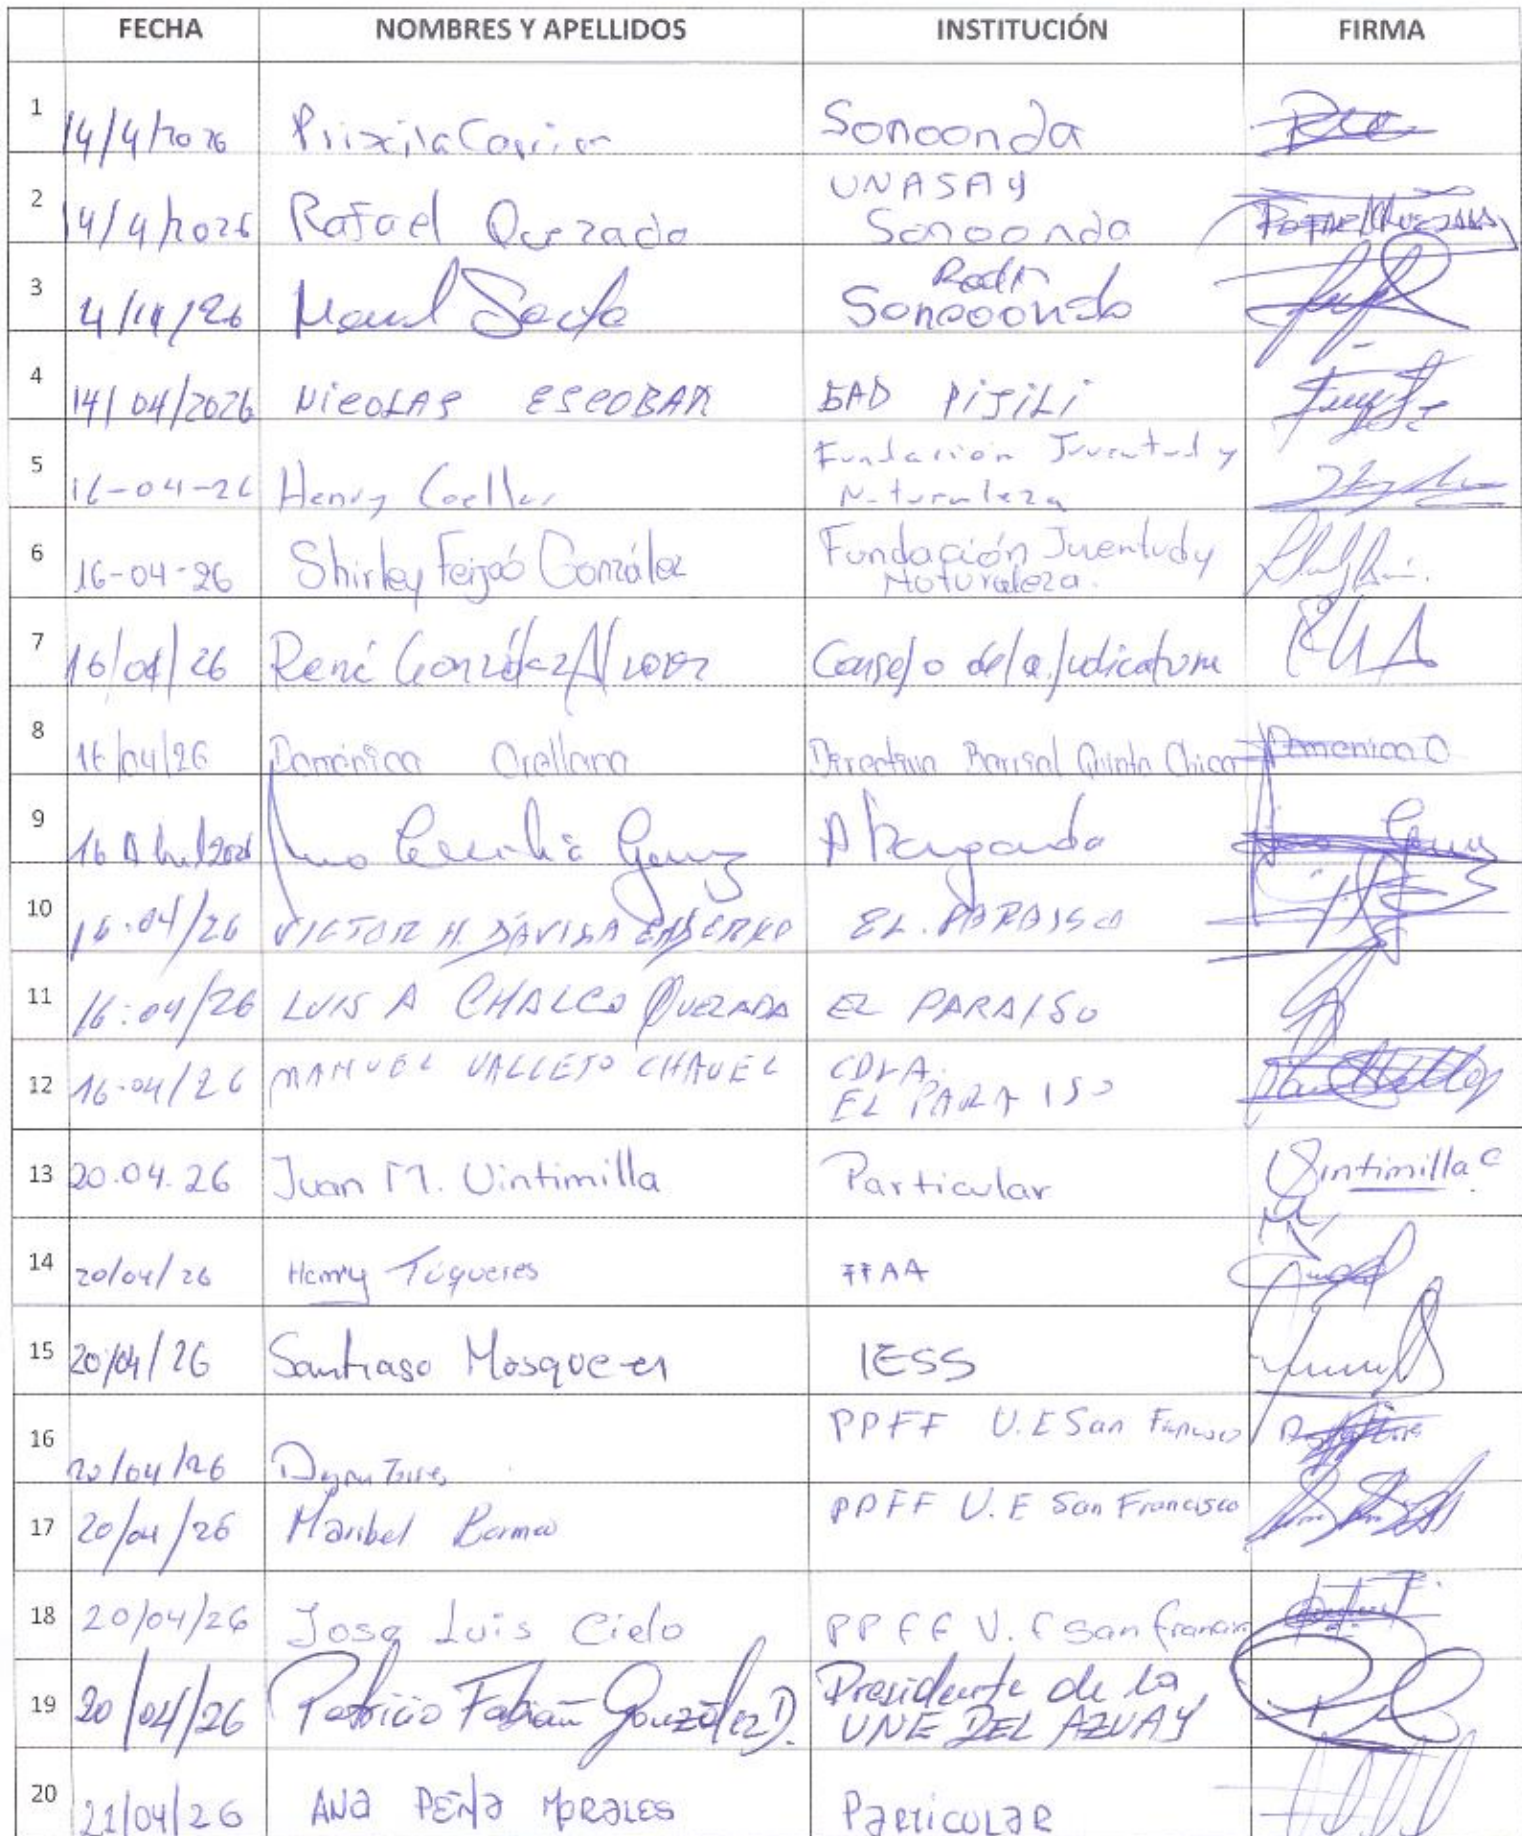 FECHA NOMBRES Y APELLIDOS INSTITUCIÓN FIRMA
1 14/4/2026 Prixila Sonoonda
2 14/4/2026 Rafael Quezada UNASAY
Sonoonda Rafael Quezada
3 Sonooonda
4 14/04/2026 NicoLAS ESCOBAR GAD PijiLi
5 16-04-26 Henry Coellar Fundación Juventud y
Naturaleza
6 16-04-26 Shirley Feijoó González Fundación Juventud y
Naturaleza.
7 16/04/26 René González Consejo de la Judicatura
8 16/04/26 Doménica Orellana Directiva Barrial Quinta Chica Domenica O
9 16 Abril 2026 Cecilia
10 16.04/26 VICTOR H. DÁVILA EL. PARAISO
11 16:04/26 LUIS A CHALCO QUEZADA EL PARAISO
12 16.04/26 MANUEL VALLEJO CHAVEZ CDLA.
EL PARAISO
13 20.04.26 Juan M. Vintimilla Particular Vintimilla C
14 20/04/26 Henry Túqueres FFAA
15 20/04/26 Santiago Mosquera IESS
16 20/04/26 Torres PPFF U.E San Francisco
17 20/04/26 Maribel Bermeo PPFF U.E San Francisco
18 20/04/26 Jose Luis Cielo PPFF U.E San Francisco
19 20/04/26 Patricio Fabián González D. Presidente de la
UNE DEL AZUAY
20 21/04/26 ANa PEÑa MORaLES ParticuLaR